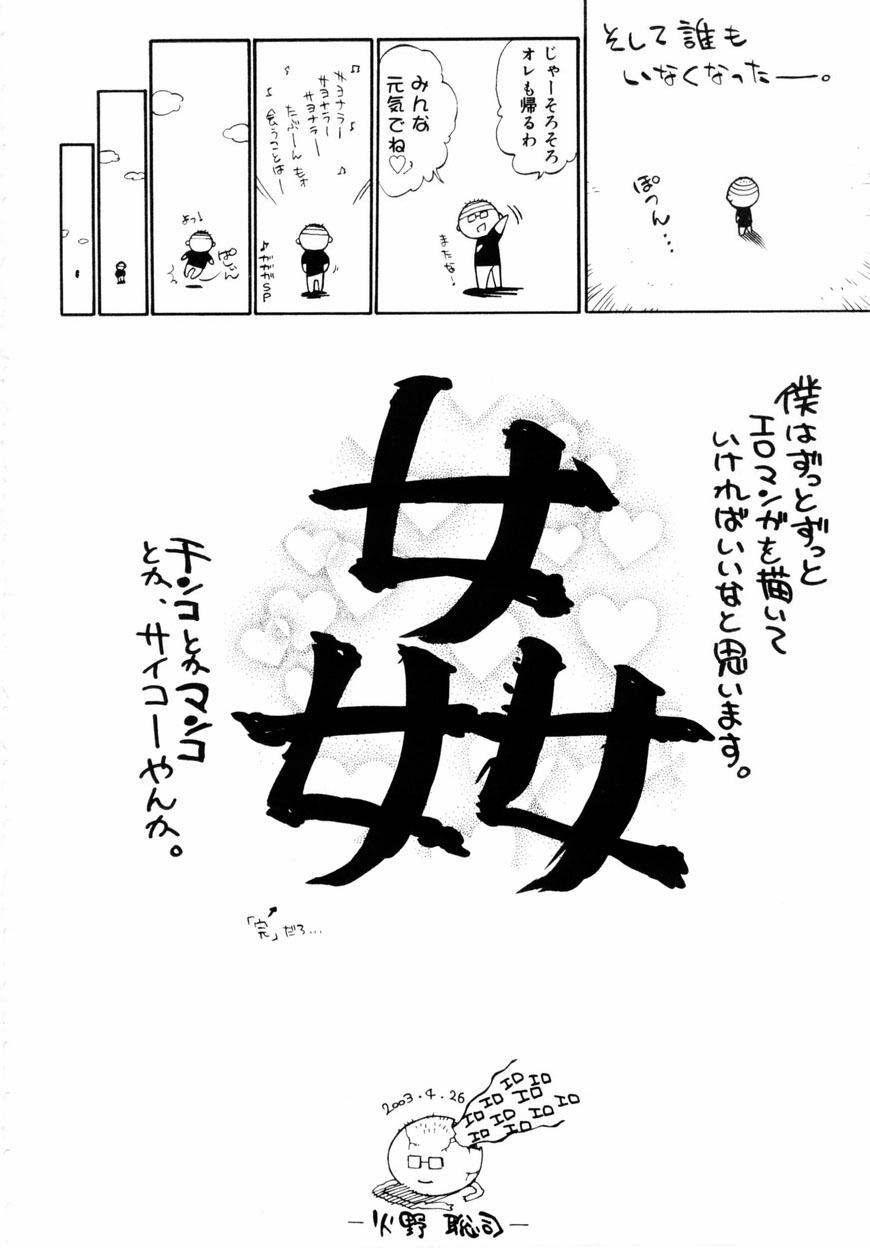 そして誰も
いなくなったー。
ぽつん…
じゃーそろそろ
オレも帰るわ
みんな
元気でね♡
またな!
♪
サヨナラー
サヨナラー
サヨナラー
たぶーんもォ
会うことはー
♪ガガガSP
よっ
ぱしん
僕はずっとずっと
エロマンガを描いて
いければいいなと思います。
姦
チンコとかマンコ
とか、サイコーやんか。
「完」だろ…
2003.4.26
エロ エロ
エロ エロ
エロ エロ エロ エロ
エロ エロ
―火野 聡司―